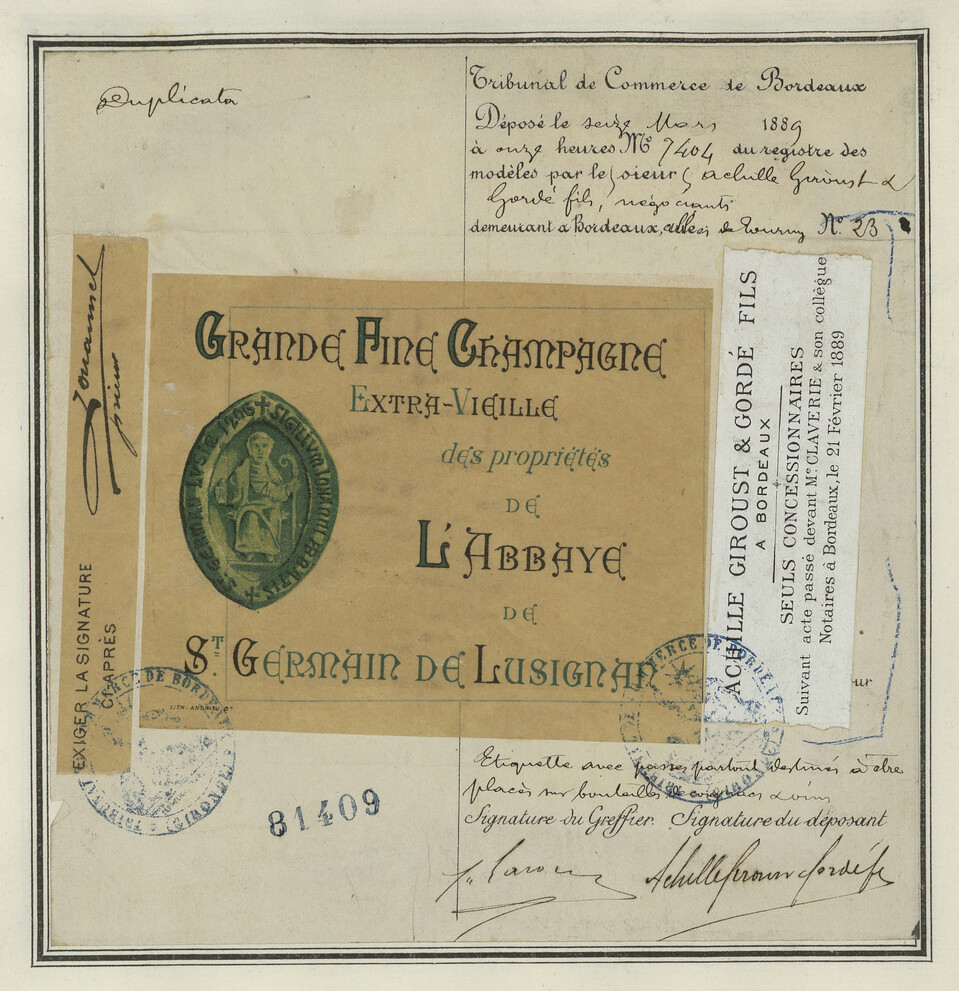 Duplicata
Tribunal de Commerce de Bordeaux
Déposé le seize Mars 1889
à onze heures Nº 7404 du registre des
modèles par le sieurs Achille Giroust &
Gordé fils, négociants
demeurant à Bordeaux, allées de Tourny Nº 23
EXIGER LA SIGNATURE
CI-APRÈS
prieur
GRANDE FINE CHAMPAGNE
EXTRA-VIEILLE
des propriétés
DE
L'ABBAYE
DE
ST. GERMAIN DE LUSIGNAN
LITH.
ACHILLE GIROUST & GORDÉ FILS
A BORDEAUX
SEULS CONCESSIONNAIRES
Suivant acte passé devant Me. CLAVERIE & son collègue
Notaires à Bordeaux, le 21 Février 1889
ur
TRIBUNAL DE COMMERCE DE BORDEAUX (GIRONDE)
TRIBUNAL DE COMMERCE DE BORDEAUX (GIRONDE)
Etiquette avec passes partout destinés à être
placés sur bouteilles de cognacs & vins
Signature du Greffier. Signature du déposant
81409
Achille Giroust Gordé fs